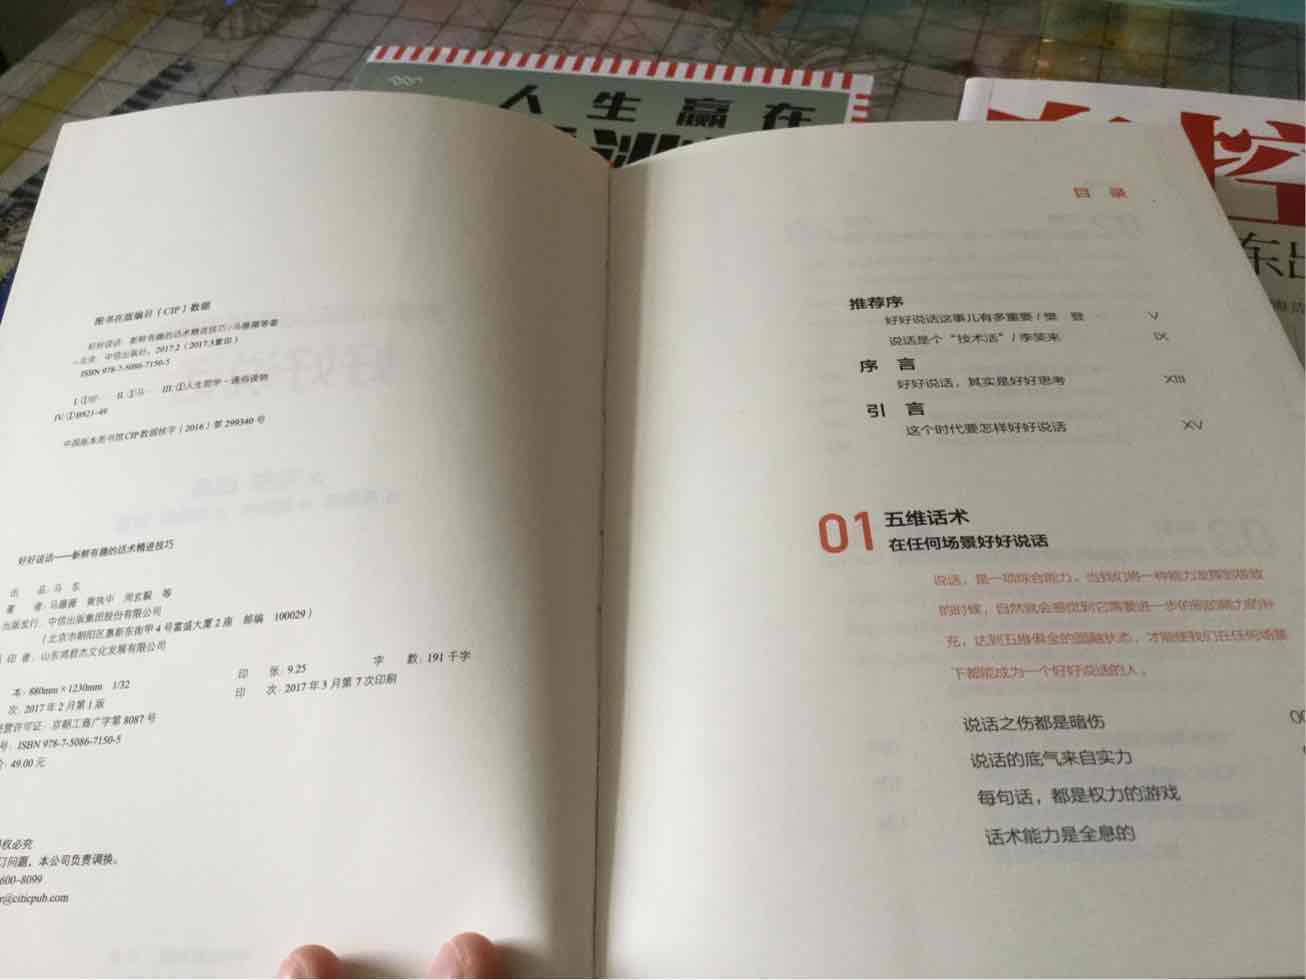 人生赢在
图书在版编目（CIP）数据
好好说话：新鲜有趣的话术精进技巧/马薇薇等著
--北京：中信出版社，2017.2（2017.3重印）
ISBN 978-7-5086-7150-5
I.①好… II.①马… III.①人生哲学－通俗读物
IV.①B821-49
中国版本图书馆CIP数据核字（2016）第299340号
好好说话——新鲜有趣的话术精进技巧
出 品：马 东
著 者：马薇薇 黄执中 周玄毅 等
出版发行：中信出版集团股份有限公司
（北京市朝阳区惠新东街甲4号富盛大厦2座 邮编 100029）
印者：山东鸿君杰文化发展有限公司
本：880mm×1230mm 1/32 印 张：9.25 字 数：191千字
次：2017年2月第1版 印 次：2017年3月第7次印刷
营许可证：京朝工商广字第8087号
号：ISBN 978-7-5086-7150-5
价：49.00元
权必究
订问题，本公司负责调换。
600-8099
r@citicpub.com
目 录
推荐序
好好说话这事儿有多重要/樊 登 V
说话是个“技术活”/李笑来 IX
序 言
好好说话，其实是好好思考 XIII
引 言
这个时代要怎样好好说话 XV
01 五维话术
在任何场景好好说话
说话，是一项综合能力。当我们将一种能力发挥到极致
的时候，自然就会感觉到它需要进一步的别的能力的补
充，达到五维俱全的圆融状态，才能使我们在任何场景
下都能成为一个好好说话的人。
说话之伤都是暗伤 00
说话的底气来自实力
每句话，都是权力的游戏
话术能力是全息的